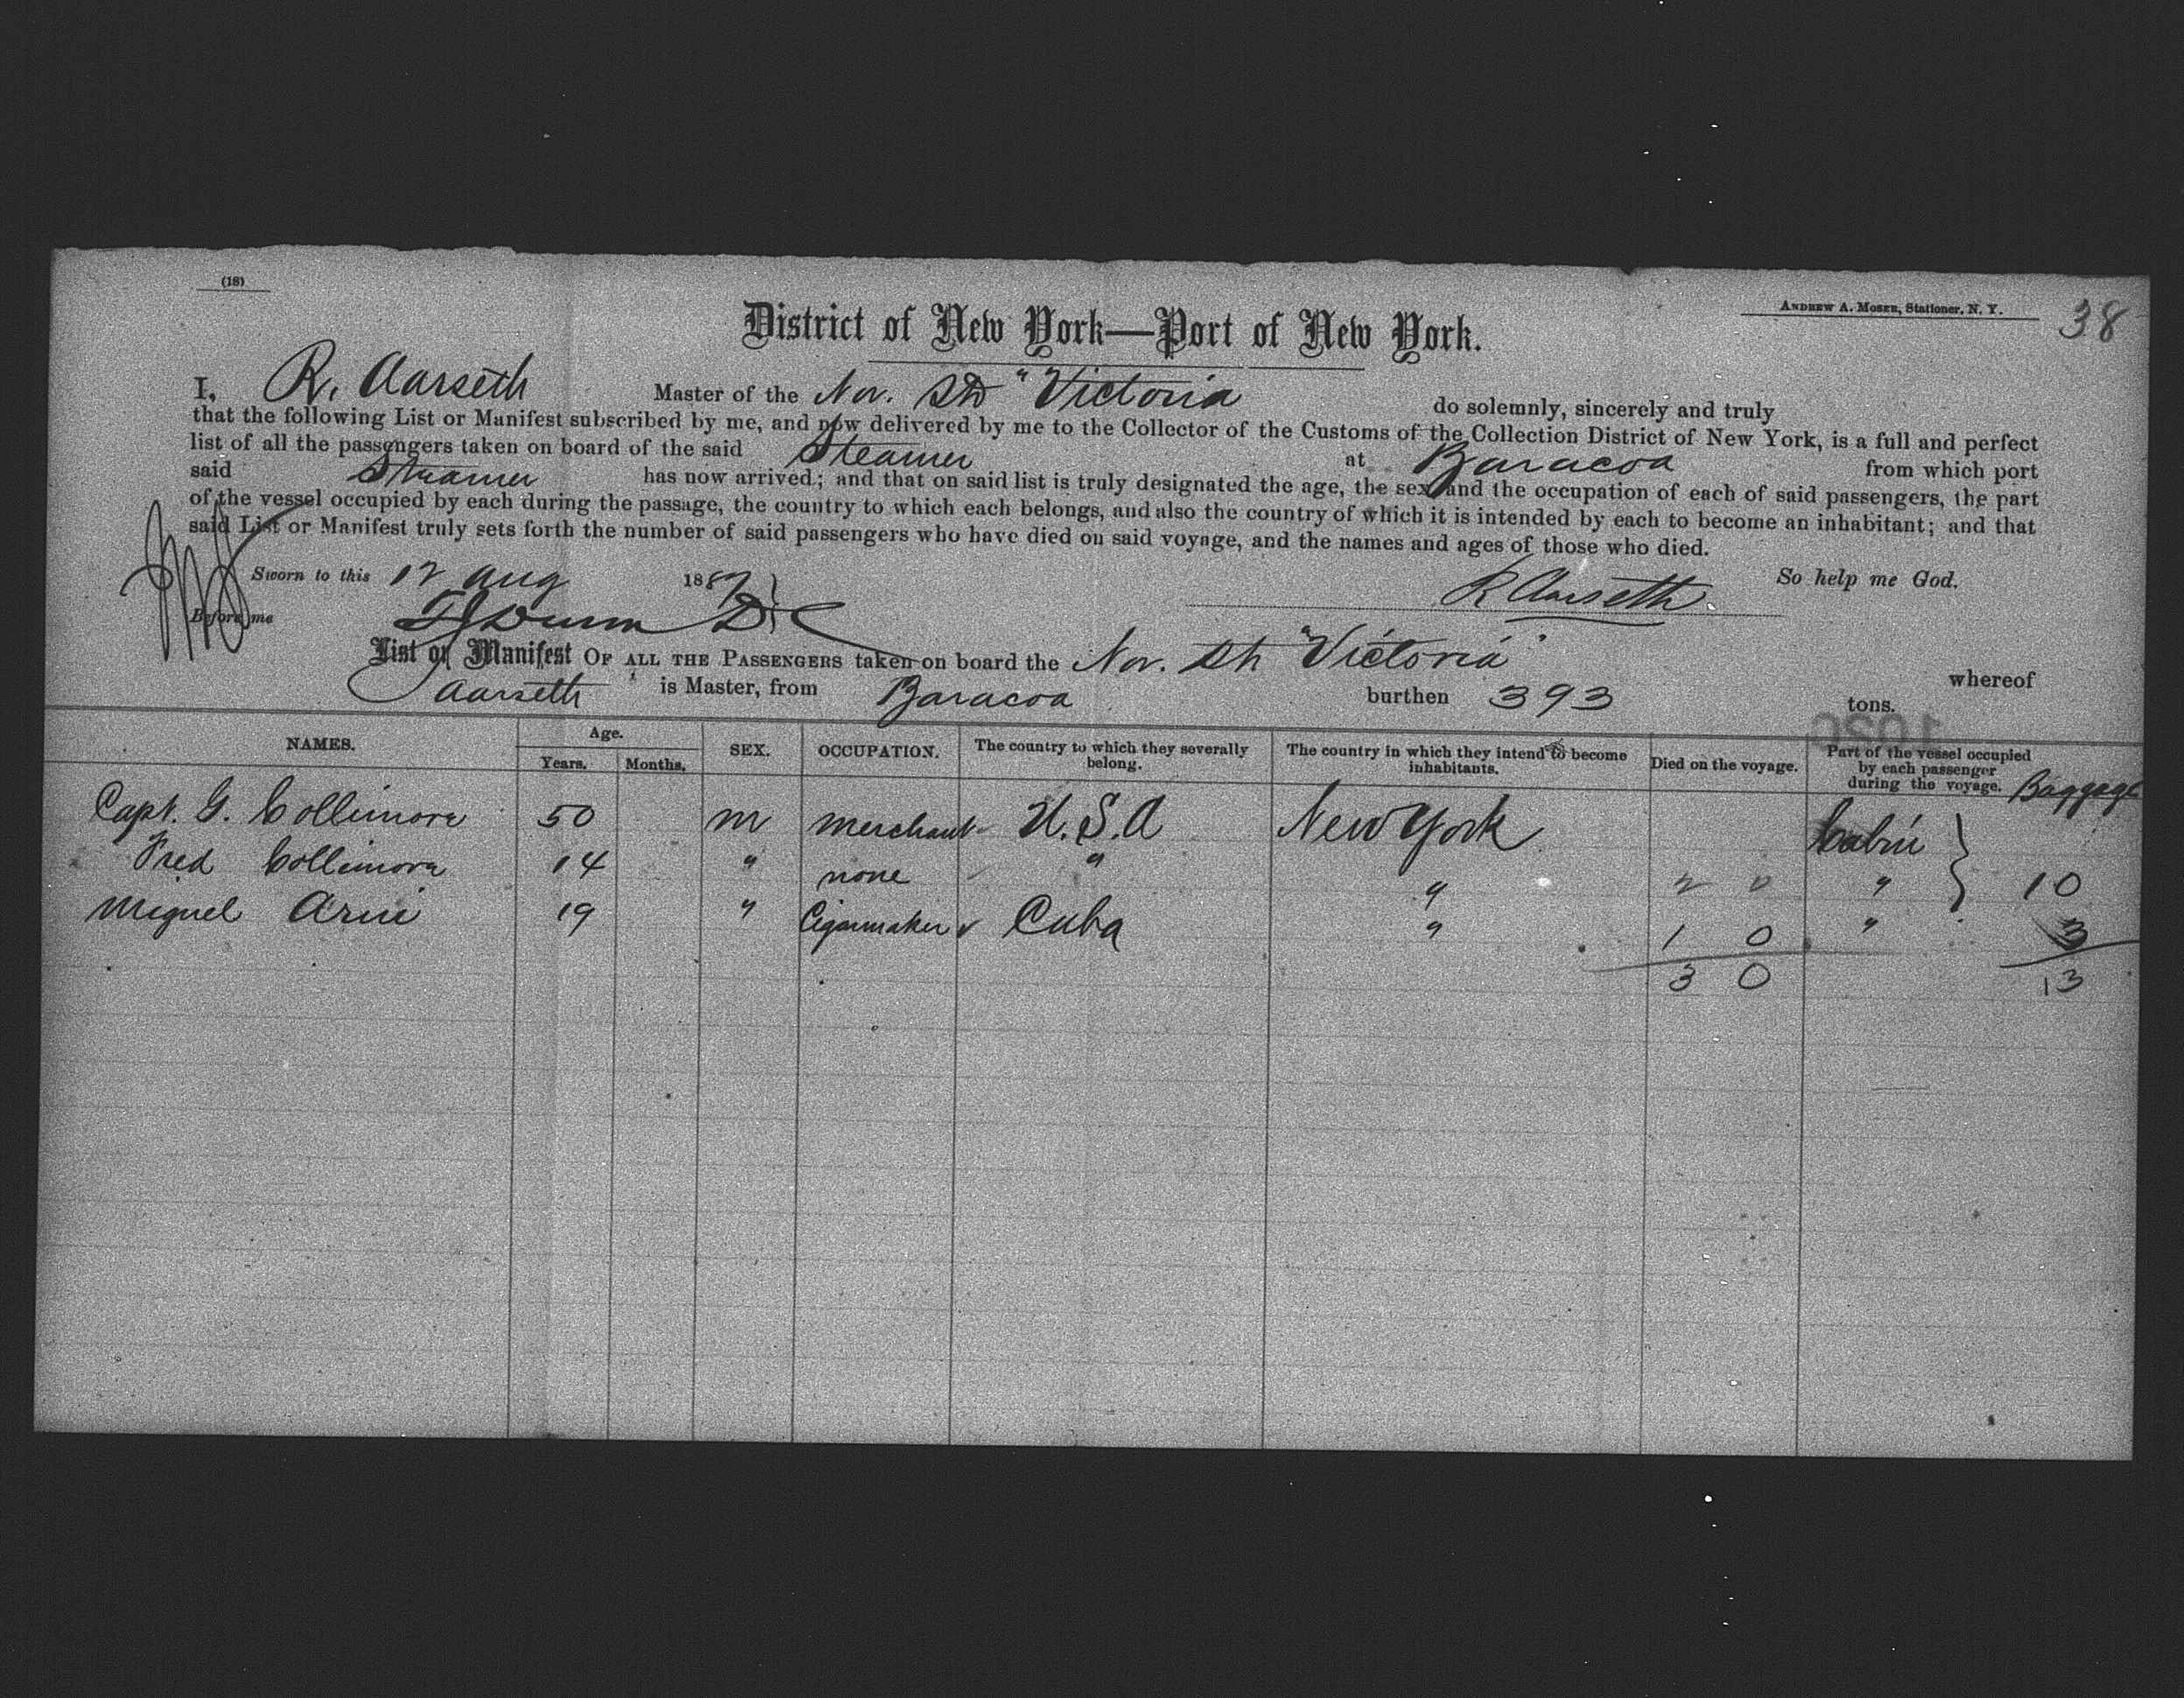 (18)
ANDREW A. MOSER, Stationer, N. Y.
38
District of New York—Port of New York.
I, R. Aarseth Master of the Nor. Str "Victoria do solemnly, sincerely and truly
that the following List or Manifest subscribed by me, and now delivered by me to the Collector of the Customs of the Collection District of New York, is a full and perfect
list of all the passengers taken on board of the said Steamer at Baracoa from which port
said Steamer has now arrived; and that on said list is truly designated the age, the sex and the occupation of each of said passengers, the part
of the vessel occupied by each during the passage, the country to which each belongs, and also the country of which it is intended by each to become an inhabitant; and that
said List or Manifest truly sets forth the number of said passengers who have died on said voyage, and the names and ages of those who died.
Sworn to this 12 Aug 1887 R Aarseth So help me God.
Before me
List or Manifest OF ALL THE PASSENGERS taken on board the Nor. Str "Victoria" whereof
Aarseth is Master, from Baracoa burthen 393 tons.
NAMES. Age. Years. Months. SEX. OCCUPATION. The country to which they severally belong. The country in which they intend to become inhabitants. Died on the voyage. Part of the vessel occupied by each passenger during the voyage. Baggage
Capt. G. Collimore 50 m merchant U.S.A New York Cabin
Fred Collimore 14 " none " " 2 0 " 10
Miguel 19 " Cigarmaker Cuba " 1 0 " 3
3 0 13